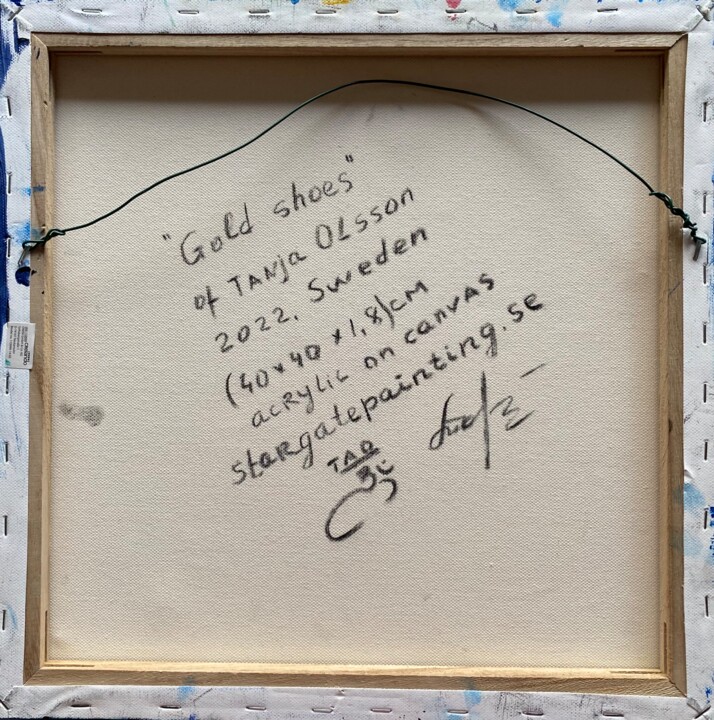 "Gold shoes"
of TANja OLsson
2022, Sweden
(40 x 40 x 1,8)cm
acRyLic on canvas
staRgatepainting.se
TAO